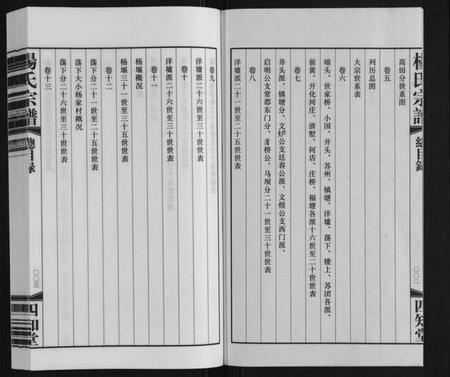 楊氏宗譜
總目録
〇〇二
四知堂
高田分世系图
卷五
列历总图
大宗世系表
卷六
墙头、世家桥、小园、井头、苏州、镇塘、洋墟、荡下、楼上、苏团各派、
前黄、开化河庄、浒墅、何店、庄桥、福塘各派十六世至二十世世表
卷七
井头派、镇塘分、文炉公支廷春公派、文煜公支西门派、
启明公支常郡东门分、圶桥公、马坝分二十一世至三十世世表
卷八
洋墟派二十一世至二十五世世表
卷九
洋墟派二十六世至三十世世表
卷十
洋墟派二十六世至三十世世表
卷十一
杨堰概况
杨堰三十一世至三十五世世表
卷十二
荡下分二十一世至二十五世世表
荡下大小杨家村概况
荡下分二十六世至三十世世表
卷十三
楊氏宗譜
總目録
〇〇三
四知堂